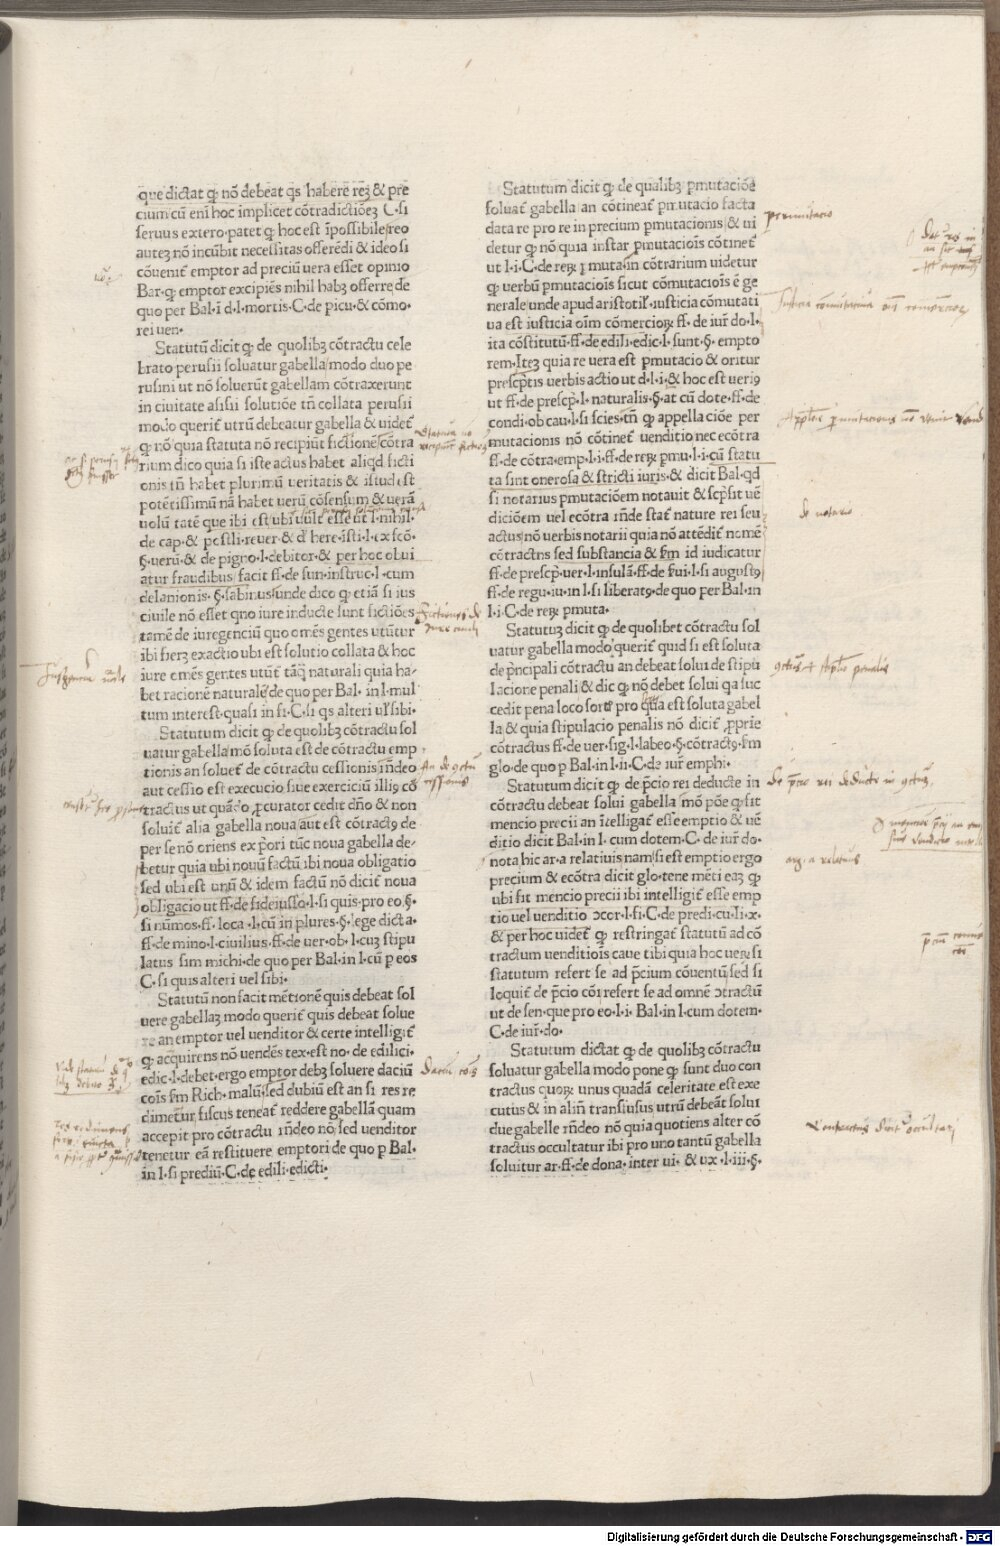 que dictat ꝙ nō debeat q̄s habere reꝫ & pre
cium cū eni hoc implicet cōtradictiōeꝫ C·si
seruus extero·patet ꝙ hoc est īpossibile reo
auteꝫ nō incūbit necessitas offerēdi & ideo si
cōuenit̄ emptor ad preciū uera esset opinio
Bar·ꝙ emptor excipiēs nihil habꝫ offerre de
quo per Bal·ī d·l·mortis·C·de picu·& cōmo·
rei uen·
Statutū dicit ꝙ de quolibꝫ cōtractu cele
brato perusii soluatur gabella modo duo pe
rusini ut nō soluerūt gabellam cōtraxerunt
in ciuitate asisii solutiōe tn̄ collata perusii
modo querit̄ utrū debeatur gabella & uidet̄
ꝙ nō quia statuta nō recipiūt fictionē cōtra
rium dico quia si iste actus habet aliqd ficti
onis tn̄ habet plurimū ueritatis & istud est
potētissimū nā habet uerū cōsensum & uerā
uolū tatē que ibi est ubi uult esse ut l·nihil·
de cap·& postli·reuer·& d̄ here·īsti·l·ex fcō·
§·uerū·& de pigno·l·debitor·& per hoc obui
atur fraudibus facit ff·de fun·instruc·l·cum
delanionis·§·sabinus unde dico ꝙ etiā si ius
ciuile nō esset qno iure inducte sunt fictiōes
tamē de iuregenciū quo omēs gentes utūtur
ibi fierꝫ exactio ubi est solutio collata & hoc
iure omēs gentes utūt̄ tāq̄ naturali quia ha·
bet racionē naturalē de quo per Bal· in l·mul
tum interest·quasi in fi·C·si qs alteri uł sibi·
Statutum dicit ꝙ de quolibꝫ cōtractu sol
uatur gabella mō soluta est de cōtractu emp
tionis an soluet̄ de cōtractu cessionis ī n̄deo
aut cessio est execucio siue exerciciū illi9 cō
tractus ut quādo ꝓcurator cedit dn̄o & non
soluit̄ alia gabella noua aut est cōtract9 de
per se nō oriens ex pori tūc noua gabella de·
betur quia ubi nouū factū ibi noua obligatio
sed ubi est unū & idem factū nō dicit̄ noua
obligacio ut ff·de fideiusso·l·si quis·pro eo·§·
si nūmos·ff· loca·l·cū in plures·§·lege dicta·
ff·de mino·l·ciuilius·ff·de uer·ob·l·cuꝫ stipu
latus sim michi·de quo per Bal·in l·cū p eos
C·si quis alteri uel sibi·
Statutū non facit mētionē quis debeat sol
uere gabellaꝫ modo querit̄ quis debeat solue
re an emptor uel uenditor & certe intelligit̄
ꝙ acquirens nō uendēs tex·est no·de edilici·
edic·l·debet·ergo emptor debꝫ soluere daciū
coīs fm Rich·malū sed dubiū est an si res re
dimetur fiscus teneat̄ reddere gabellā quam
accepit pro cōtractu ī n̄deo nō sed uenditor
tenetur eā restituere emptori de quo p Bal·
in l·si prediū·C·de edili·edicti·
Statutum dicit ꝙ de qualibꝫ pmutaciōe
soluat̄ gabella an cōtineat̄ pmutacio facta
data re pro re in precium pmutacionis & ui
detur ꝙ nō quia instar pmutaciois cōtinet̄
ut l·i·C·de reꝝ pmuta·in cōtrarium uidetur
ꝙ uerbū pmutaciois sicut cōmutaciois ē ge
nerale unde apud aristotil·iusticia cōmutati
ua est iusticia oīm cōmercioꝝ ff·de iur̄ do·l·
ita cōstitutū·ff·de edili·edic·l·sunt·§·empto
rem·Iteꝫ quia re uera est pmutacio & oritur
prescptis uerbis actio ut d·l·i·& hoc est ueriꝰ
ut ff·de prescp·l·naturalis·§·at cū dote·ff·de
condi·ob cau·l·si scies·tn̄ ꝙ appella cióe per
mutacionis nō cōtinet̄ uenditio nec ecōtra
ff·de cōtra·emp·l·i·ff·de reꝝ pmu·l·i·cū statu
ta sint onerosa & stricti iuris·& dicit Bal·qd
si notarius pmutaciōem notauit & scpsit uē
diciōem uel ecōtra ī n̄de stat̄ nature rei seu
actus nō uerbis notarii quia nō attēdit̄ nomē
cōtractus sed substancia & fm id iudicatur
ff·de prescp·uer·l·insulā·ff·de fui·l·si august9
ff·de regu·iu·in l·si liberat9·de quo per Bal·in
l·i·C·de reꝝ pmuta·
Statutuꝫ dicit ꝙ de quolibet cōtractu sol
uatur gabella modo querit̄ quid si est soluta
de pncipali cōtractu an debeat solui de stipu
lacione penali & dic ꝙ nō debet solui qa suc
cedit pena loco sortꝭ pro qua est soluta gabel
la & quia stipulacio penalis nō dicit̄ ꝓprie
cōtractus ff·de uer·sig·l·labeo·§·cōtract9·fm
glo·de quo p Bal·in l·ii·C·de iur̄ emphi·
Statutum dicit ꝙ de pcio rei deducte in
cōtractu debeat solui gabella mō pōe ꝙ sit
mencio precii an ītelligat̄ esse emptio & uē
ditio dicit Bal·in l·cum dotem·C·de iur̄ do·
nota hic ar·a relatiuis nam si est emptio ergo
precium & ecōtra dicit glo·tene mēti eaꝫ ꝙ
ubi fit mencio precii ibi intelligit̄ esse emp
tio uel uenditio ↄcor·l·fi·C·de predi·cu·li·x·
& per hoc uidet̄ ꝙ restringat̄ statutū ad cō
tractum uenditiois caue tibi quia hoc ueꝝ si
statutum refert se ad pcium cōuentū sed si
loquit̄ de pcio coi refert se ad omnē ↄtractū
ut de sen·que pro eo·l·i· Bal·in l·cum dotem·
C·de iur̄·do·
Statutum dictat ꝙ de quolibꝫ cōtractu
soluatur gabella modo pone ꝙ sunt duo con
tractus quoꝝ unus quadā celeritate est exe
cutus & in aliū transfusus utrū debeāt solui
due gabelle r̄ndeo nō quia quotiens alter cō
tractus occultatur ibi pro uno tantū gabella
soluitur ar·ff·de dona·inter ui· & ux·l·iii·§·
permutacio
de notario
arg. a relatiuis
Digitalisierung gefördert durch die Deutsche Forschungsgemeinschaft - DFG